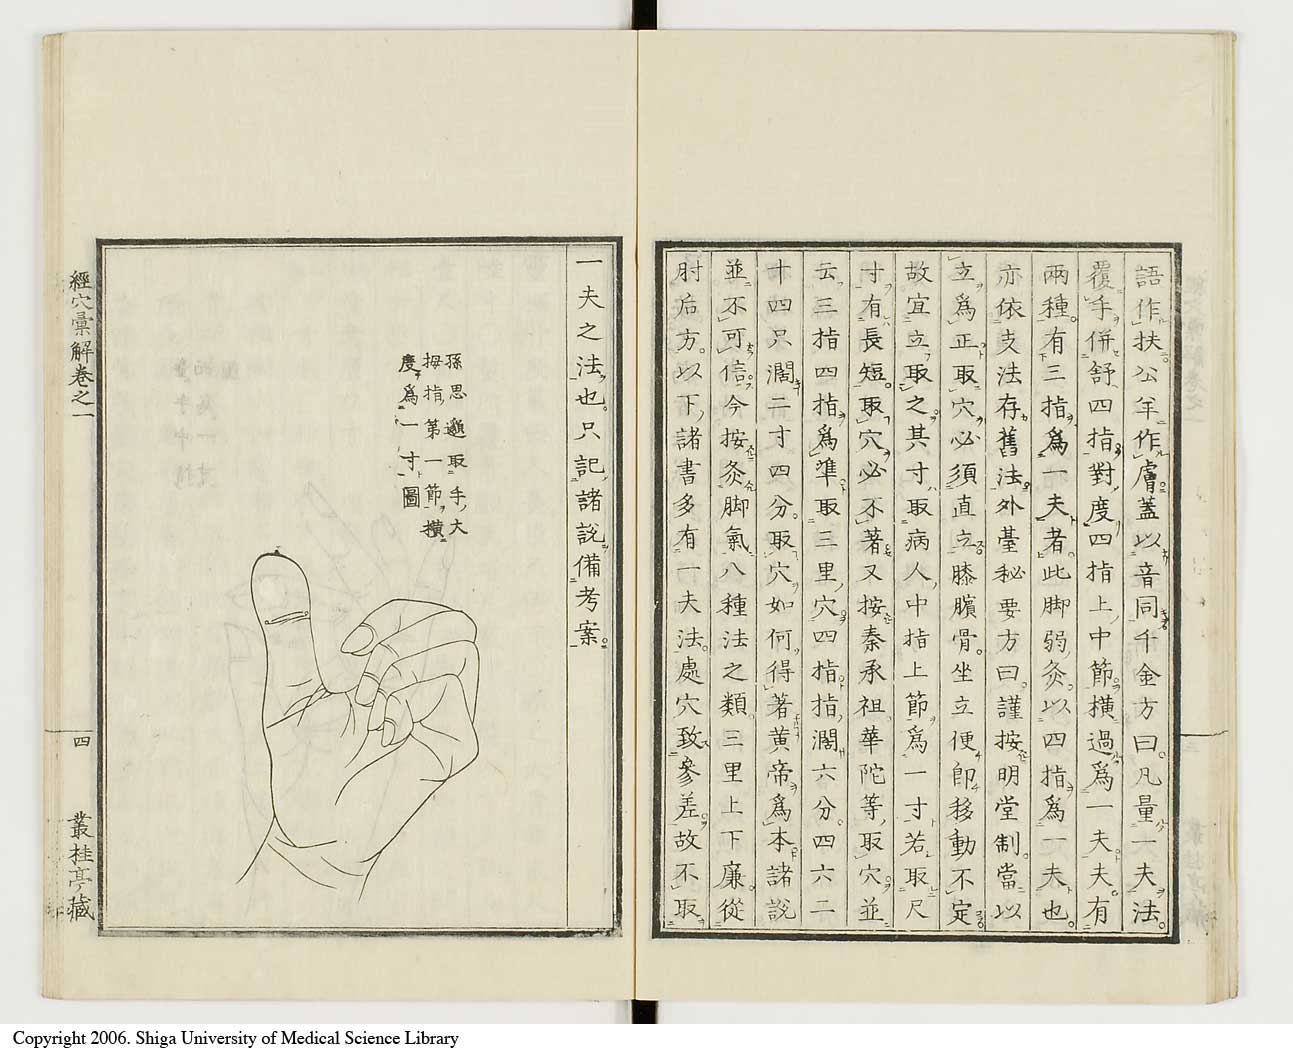 語作扶。公年作膚蓋以音同千金方曰。凡量一夫法。
覆手併舒四指對度四指上中節橫過爲一夫夫有
兩種。有三指爲一夫者。此脚弱灸。以四指爲一夫也。
亦依支法存舊法外臺秘要方曰。謹按明堂制。當以
立爲正取穴必須直立膝臏骨。坐立便卽移動不定
故宜立取之。其寸取病人中指上節爲一寸若取尺
寸有長短。取穴必不著又按秦承祖。華陀等取穴。並
云三指四指爲準取三里穴四指指濶六分。四六二
十四只濶二寸四分。取穴如何得著黄帝爲本諸說
並不可信。今按灸脚氣八種法之類。三里上下廉。從
肘后方。以下諸書多有一夫法。處穴致參差。故不取
一夫之法也。只記諸說備考案。
孫思邈取手大
拇指第一節橫
度爲一寸圖
經穴彙解卷之一
四
叢桂亭藏
Copyright 2006. Shiga University of Medical Science Library